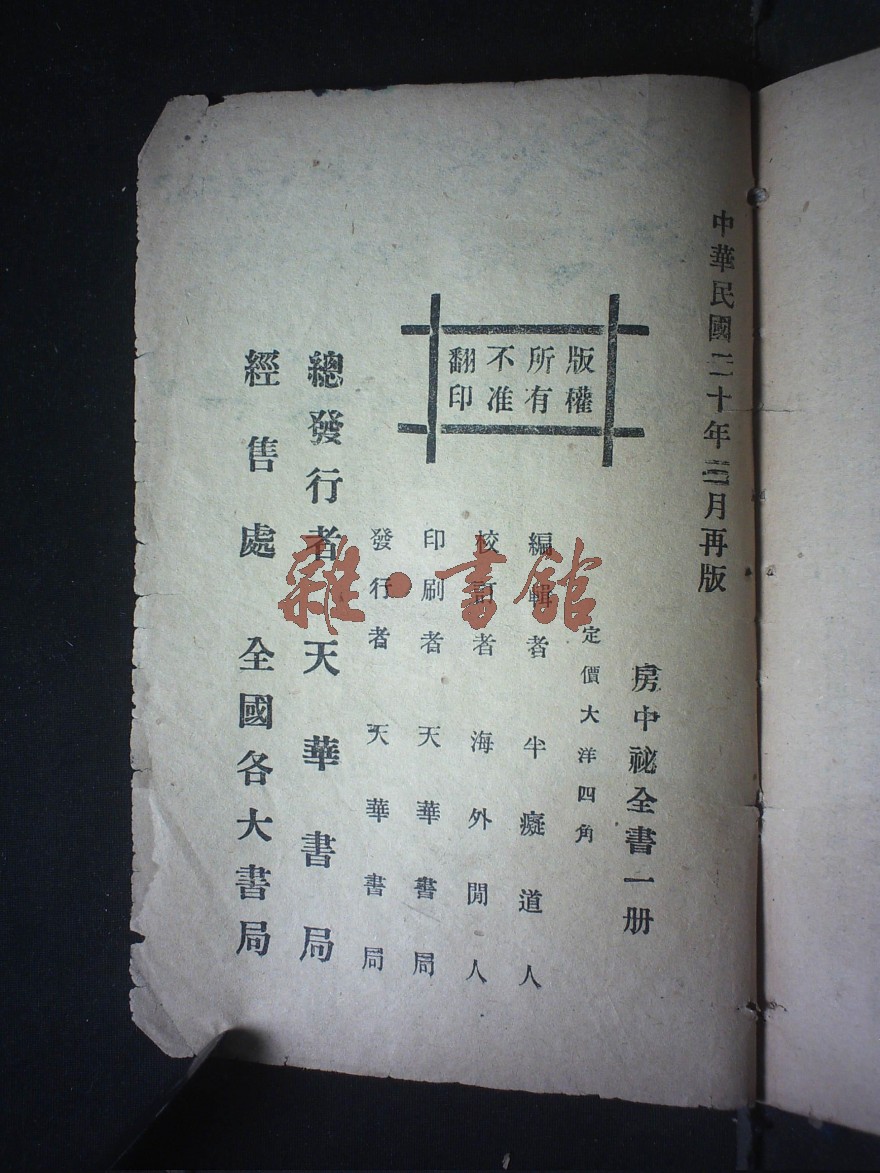 中華民國二十年三月再版
房中祕全書一册
定價大洋四角
版權
所有
不准
翻印
編輯者 半癡道人
校訂者 海外閒人
印刷者 天華書局
發行者 天華書局
總發行者 天華書局
經售處 全國各大書局
雜·書館